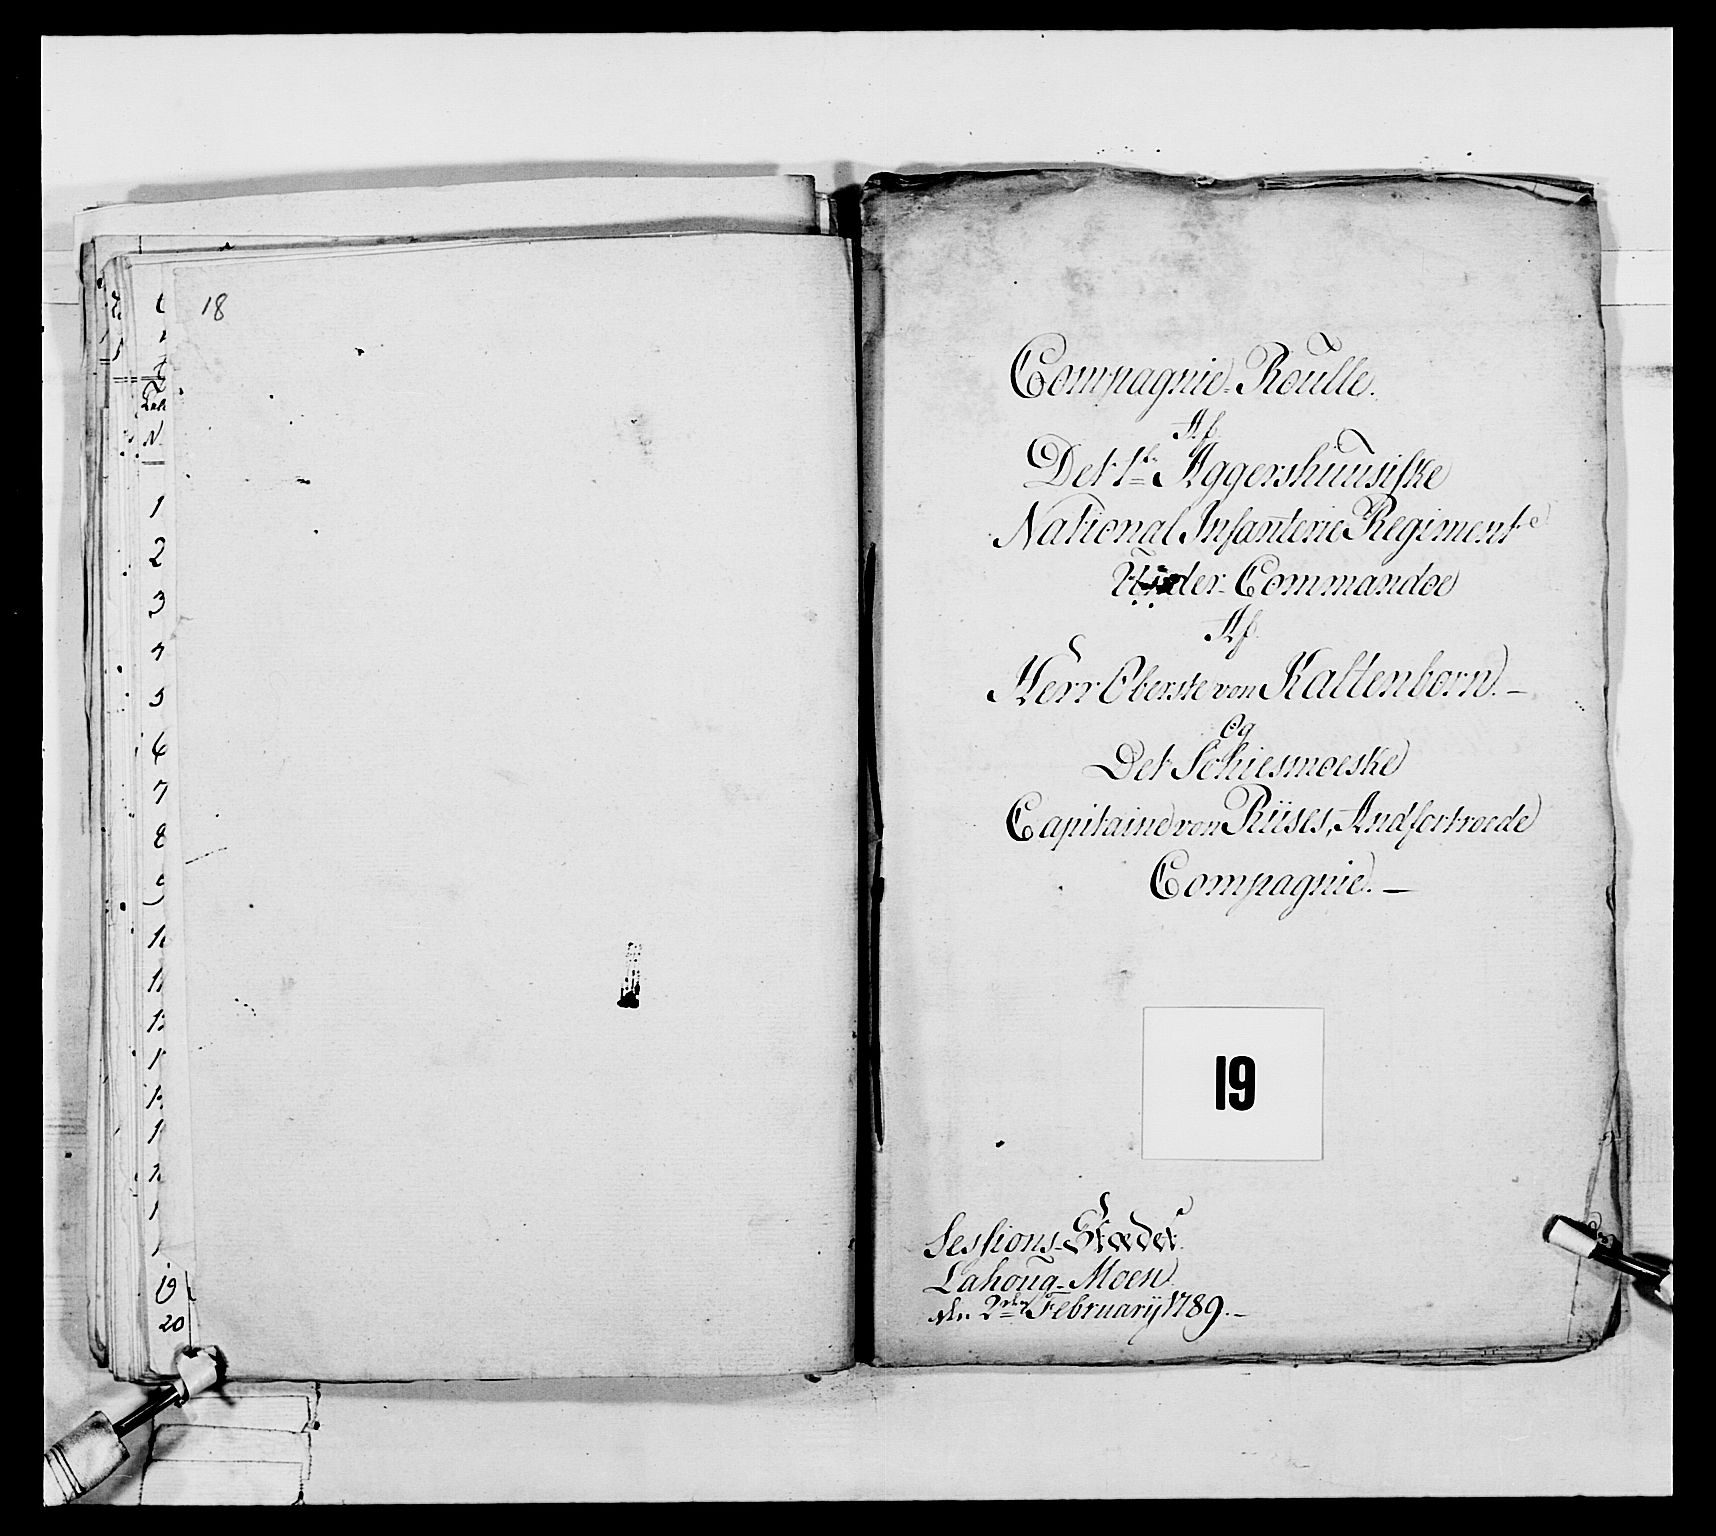 18
N.
1
2
3
4
5
6
7
8
9
19
20
Compagnie-Roulle.
Af
Det 1te Aggershuusiske
National Infanterie Regiment
Under Commandoe
Af
Herr Oberste von Kaltenborn.-
Og
Det Schiesmoeske
Capitaine von Riises, Andfortroede
Compagnie.-
19
Sessions-Stædet
Lahoug-Moen
den 2den February 1789.-